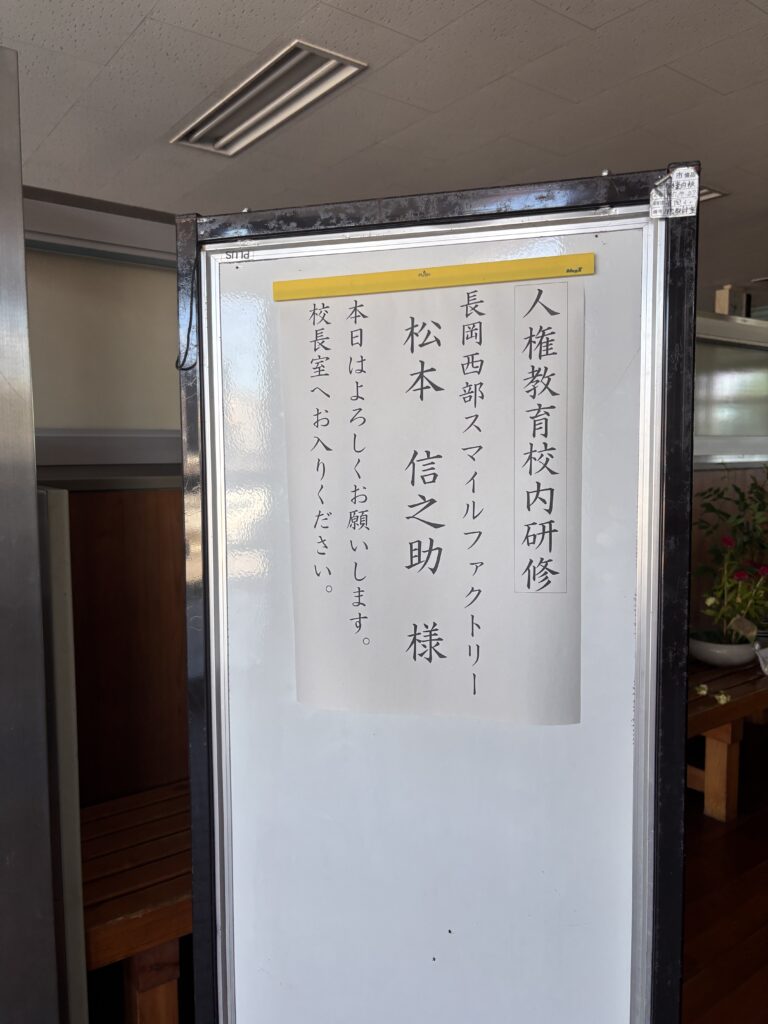 人権教育校内研修
長岡西部スマイルファクトリー
松本 信之助 様
本日はよろしくお願いします。
校長室へお入りください。
PLUS